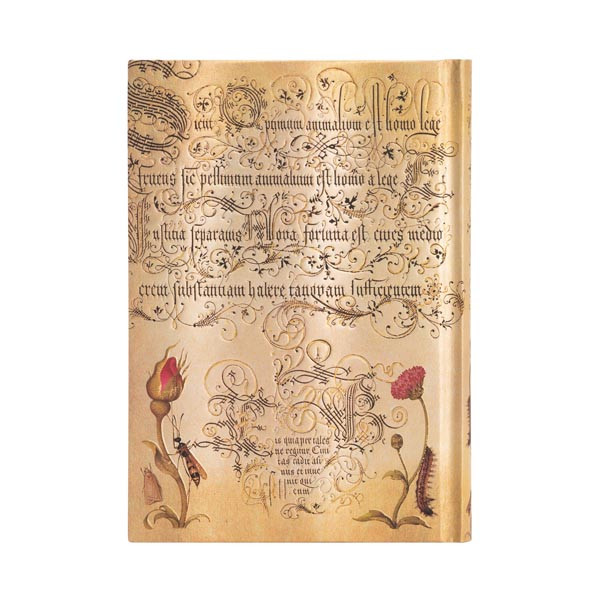 Sicut Optimum animalium est homo lege
fruens sic pessimum animalium est homo a lege
Iustitia separatus Bona fortuna est cives medio
crem substantiam habere tanquam sufficientem
is quia per tales
ne regitur Civi
tas cadit ali